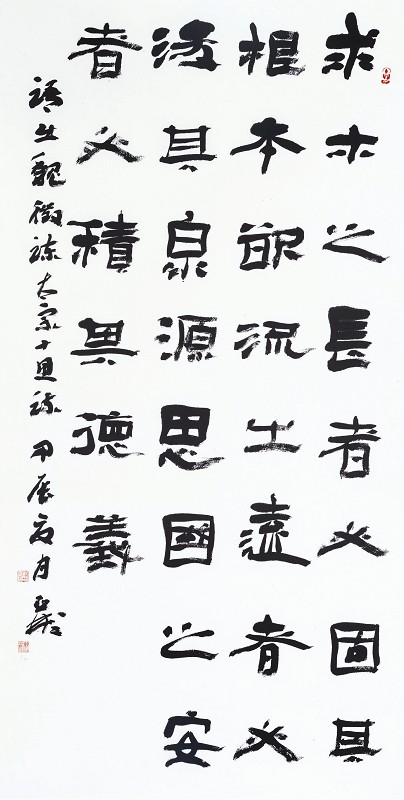 求木之長者必固其
根本欲流之遠者必
浚其泉源思國之安
者必積其德義
語出魏徵諫太宗十思疏甲辰夏月